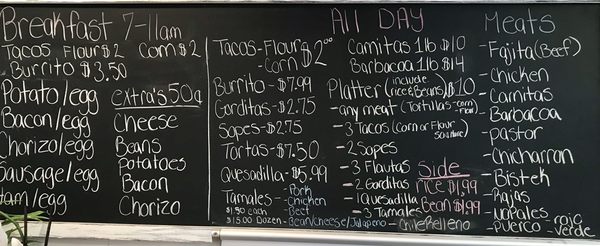 Breakfast 7-11am
Tacos Flour $2 Corn $2
Burrito $3.50
Potato/egg
Bacon/egg
Chorizo/egg
Sausage/egg
Ham/egg
extra's 50¢
Cheese
Beans
Potatoes
Bacon
Chorizo
All DAY
Tacos-Flour
-Corn $2.00
Burrito-$7.99
Gorditas-$2.75
Sopes-$2.75
Tortas-$7.50
Quesadilla-$5.99
Tamales-Pork
$1.50 each -Chicken
-Beef
$15.00 Dozen-Bean/Cheese/Jalapeno
-Chile Relleno
Carnitas 1lb $10
Barbacoa 1lb $14
Platter (include rice & Beans) $10
-any meat (Tortillas-corn
-Flour)
-3 Tacos (Corn or Flour
-2 Sopes
-3 Flautas
-2 Gorditas
-1 Quesadilla
-3 Tamales
Side
rice $1.99
Bean $1.99
Meats
-Fajita (Beef)
-Chicken
-Carnitas
-Barbacoa
-pastor
-Chicharron
-Bistek
-Rajas
-Nopales
-puerco-rojo
-verde